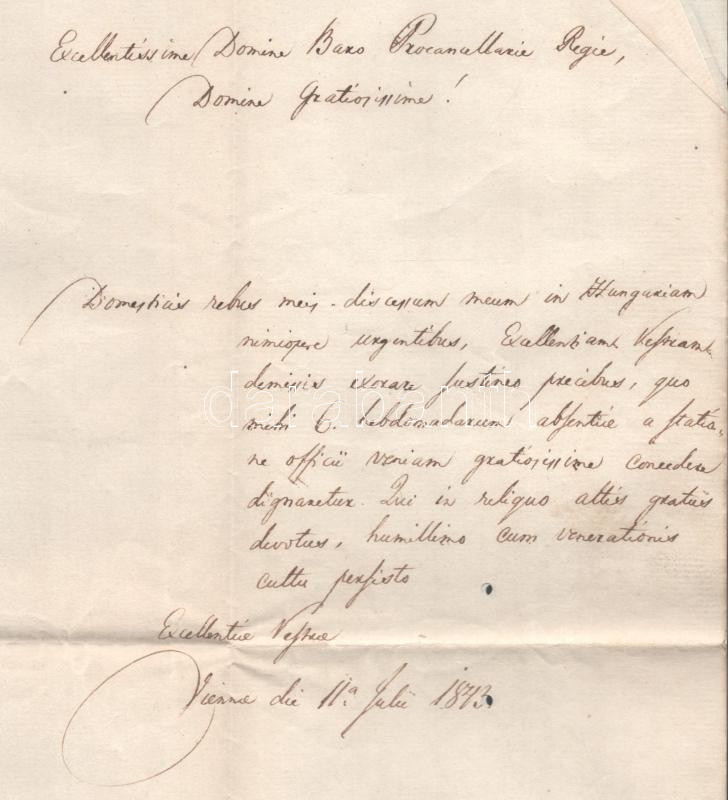 Excellentissime Domine Baro Procancellarie Regie,
Domine Gratiosissime!
Domesticis rebus meis discessum meum in Hungariam
nimiopere urgentibus, Excellentiam Vestram
demissis exorare sustineo precibus, quo
mihi 6. hebdomadarum absentiæ a statio-
ne officii veniam gratiosissime concedere
dignaretur. Qui in reliquo altis gratiis
devotus, humillimo cum venerationis
cultu persisto
Excellentiæ Vestræ
Viennæ die 11ª Julii 1843.
darabanth